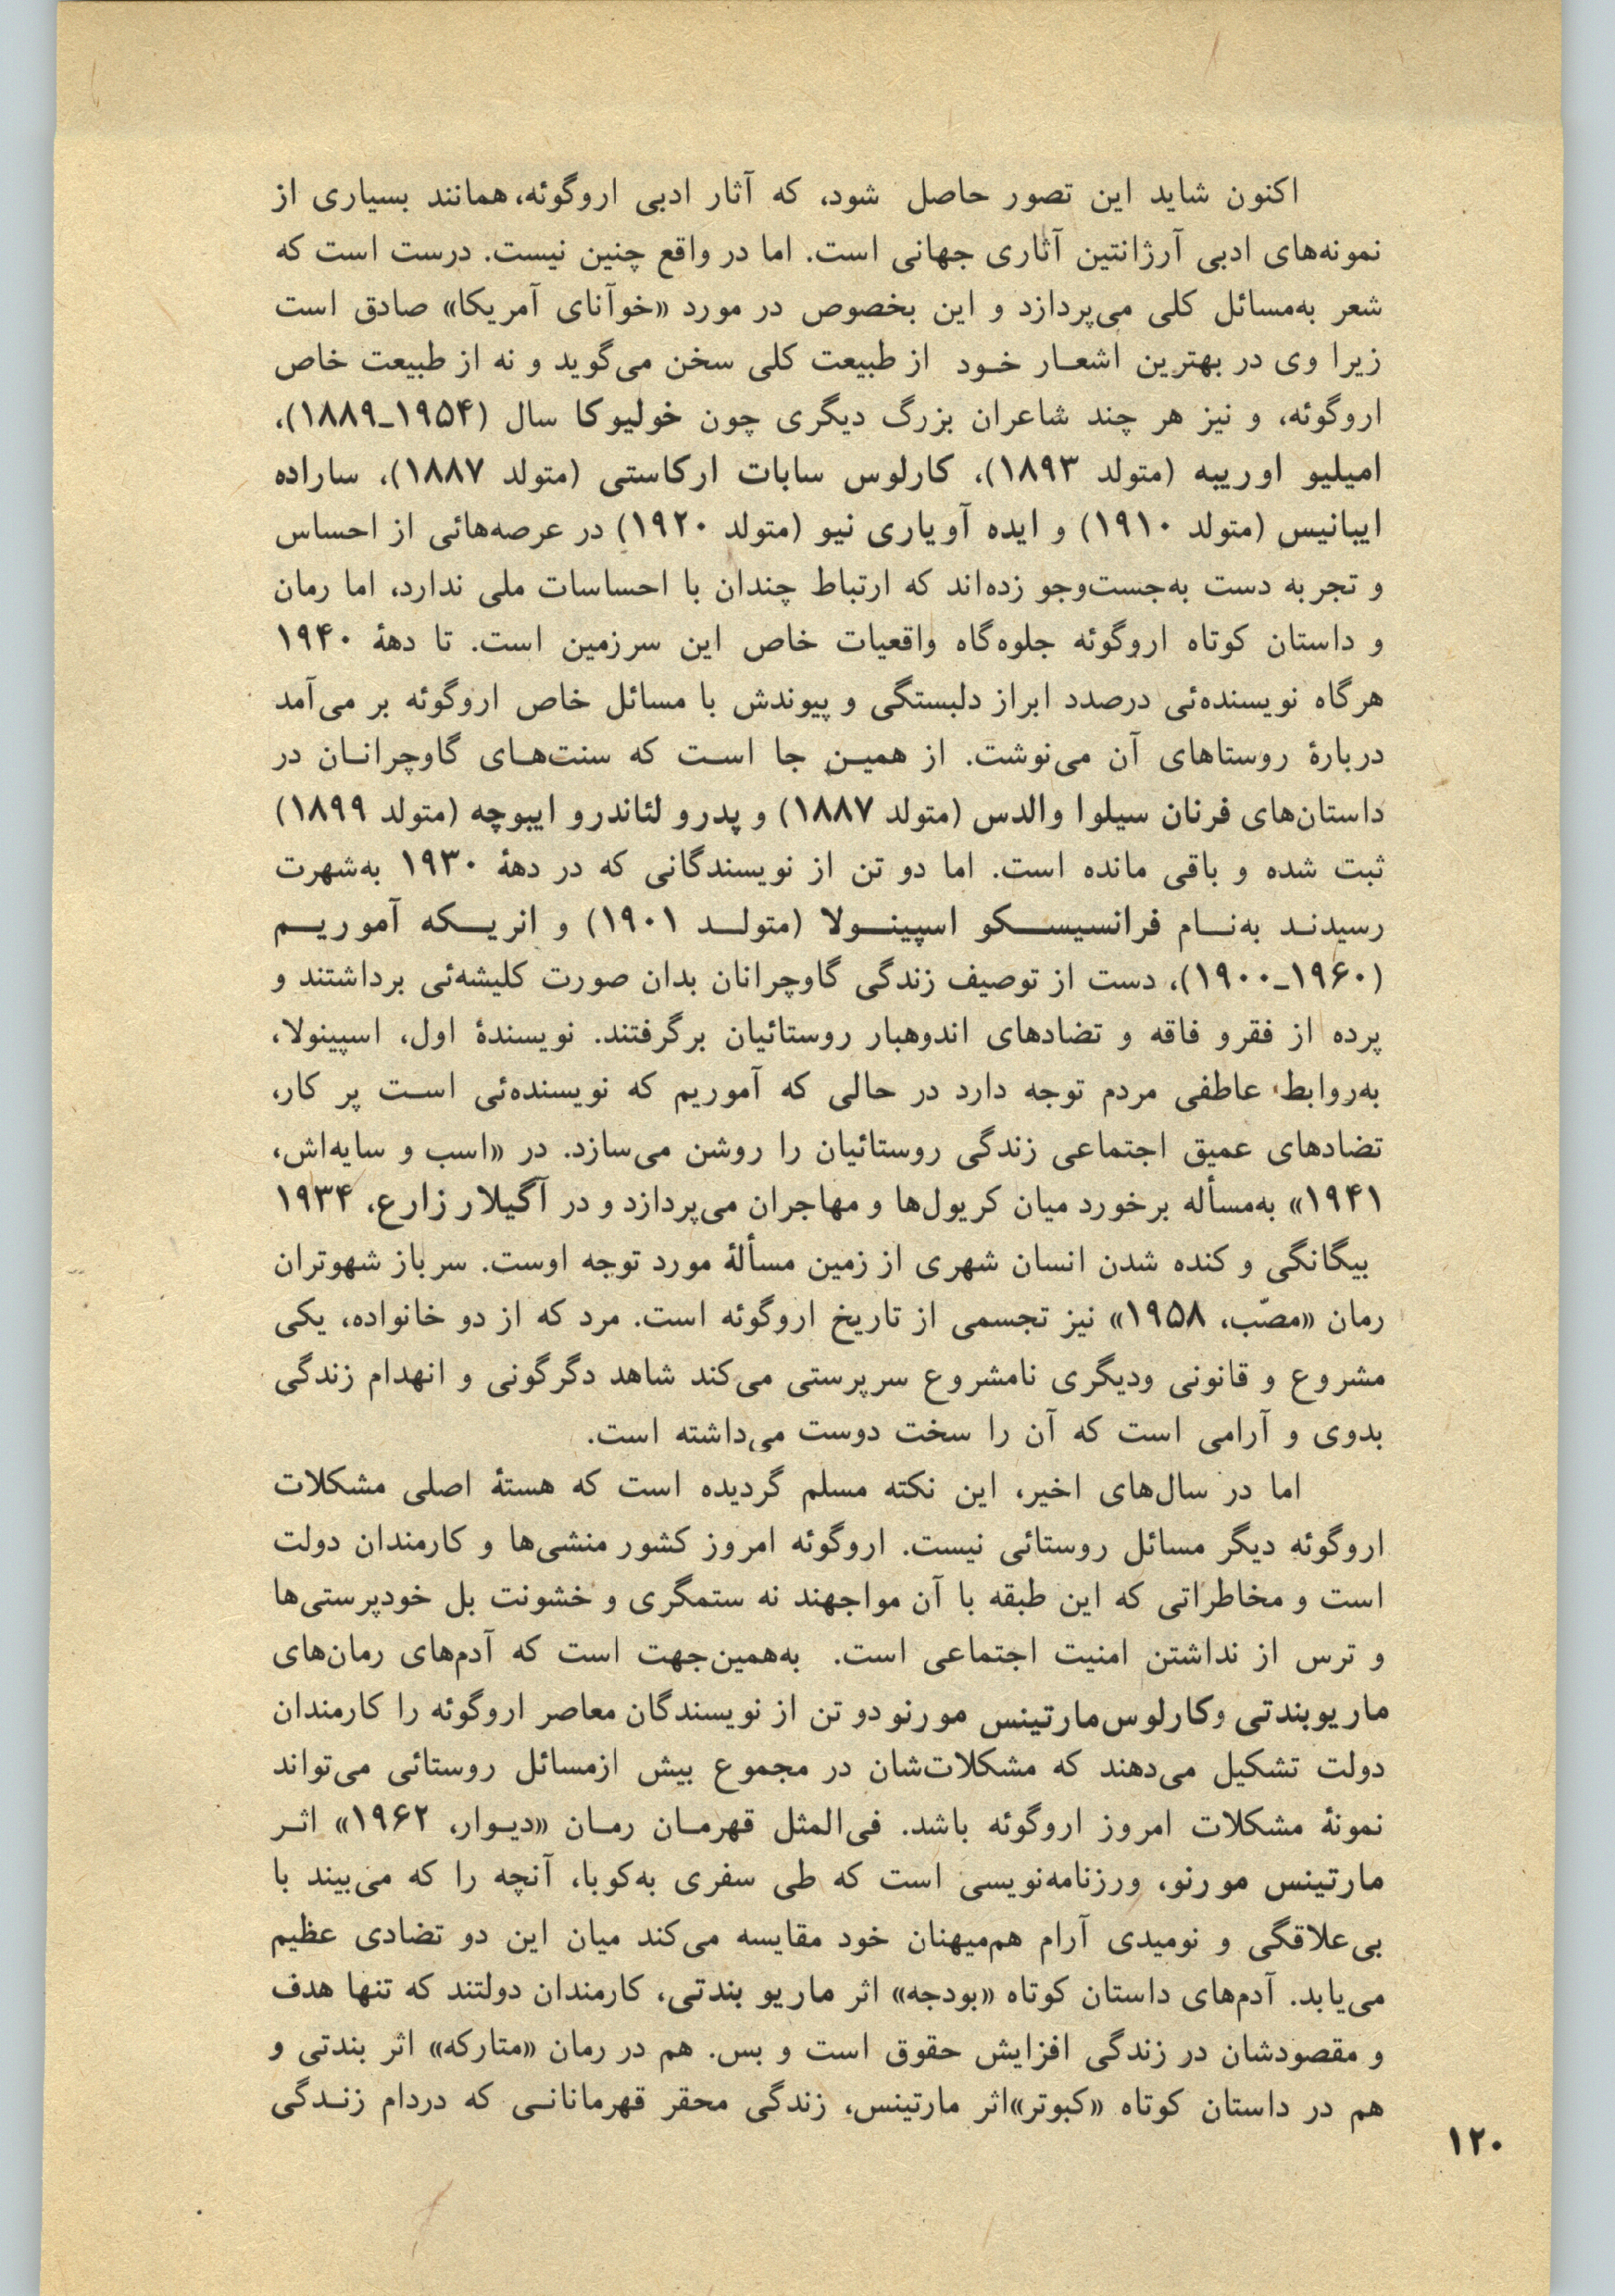 اکنون شاید این تصور حاصل شود، که آثار ادبی اروگوئه، همانند بسیاری از
نمونه‌های ادبی آرژانتین آثاری جهانی است. اما در واقع چنین نیست. درست است که
شعر به‌مسائل کلی می‌پردازد و این بخصوص در مورد «خوآنای آمریکا» صادق است
زیرا وی در بهترین اشعـار خـود از طبیعت کلی سخن می‌گوید و نه از طبیعت خاص
اروگوئه، و نیز هر چند شاعران بزرگ دیگری چون خولیوکا سال (۱۹۵۴ـ۱۸۸۹)،
امیلیو اوریبه (متولد ۱۸۹۳)، کارلوس سابات ارکاستی (متولد ۱۸۸۷)، ساراده
ایبانیس (متولد ۱۹۱۰) و ایده آویاری نیو (متولد ۱۹۲۰) در عرصه‌هائی از احساس
و تجربه دست به‌جست‌وجو زده‌اند که ارتباط چندان با احساسات ملی ندارد، اما رمان
و داستان کوتاه اروگوئه جلوه‌گاه واقعیات خاص این سرزمین است. تا دههٔ ۱۹۴۰
هرگاه نویسنده‌ئی درصدد ابراز دلبستگی و پیوندش با مسائل خاص اروگوئه بر می‌آمد
دربارهٔ روستاهای آن می‌نوشت. از همیـن جا اسـت که سنت‌هـای گاوچرانـان در
داستان‌های فرنان سیلوا والدس (متولد ۱۸۸۷) و پدرو لئاندرو ایبوچه (متولد ۱۸۹۹)
ثبت شده و باقی مانده است. اما دو تن از نویسندگانی که در دههٔ ۱۹۳۰ به‌شهرت
رسیدنـد به‌نـام فرانسیسـکو اسپینـولا (متولـد ۱۹۰۱) و انریـکه آموریـم
(۱۹۶۰ـ۱۹۰۰)، دست از توصیف زندگی گاوچرانان بدان صورت کلیشه‌ئی برداشتند و
پرده از فقرو فاقه و تضادهای اندوهبار روستائیان برگرفتند. نویسندهٔ اول، اسپینولا،
به‌روابط عاطفی مردم توجه دارد در حالی که آموریم که نویسنده‌ئی اسـت پر کار،
تضادهای عمیق اجتماعی زندگی روستائیان را روشن می‌سازد. در «اسب و سایه‌اش،
۱۹۴۱» به‌مسأله برخورد میان کریول‌ها و مهاجران می‌پردازد و در آگیلار زارع، ۱۹۳۴
بیگانگی و کنده شدن انسان شهری از زمین مسألهٔ مورد توجه اوست. سرباز شهوتران
رمان «مصّب، ۱۹۵۸» نیز تجسمی از تاریخ اروگوئه است. مرد که از دو خانواده، یکی
مشروع و قانونی ودیگری نامشروع سرپرستی می‌کند شاهد دگرگونی و انهدام زندگی
بدوی و آرامی است که آن را سخت دوست می‌داشته است.
اما در سال‌های اخیر، این نکته مسلم گردیده است که هستهٔ اصلی مشکلات
اروگوئه دیگر مسائل روستائی نیست. اروگوئه امروز کشور منشی‌ها و کارمندان دولت
است و مخاطراتی که این طبقه با آن مواجهند نه ستمگری و خشونت بل خودپرستی‌ها
و ترس از نداشتن امنیت اجتماعی است. به‌همین‌جهت است که آدم‌های رمان‌های
ماریوبندتی وکارلوس‌مارتینس مورنو دو تن از نویسندگان معاصر اروگوئه را کارمندان
دولت تشکیل می‌دهند که مشکلات‌شان در مجموع بیش ازمسائل روستائی می‌تواند
نمونهٔ مشکلات امروز اروگوئه باشد. فی‌المثل قهرمـان رمـان «دیـوار، ۱۹۶۲» اثـر
مارتینس مورنو، ورزنامه‌نویسی است که طی سفری به‌کوبا، آنچه را که می‌بیند با
بی‌علاقگی و نومیدی آرام هم‌میهنان خود مقایسه می‌کند میان این دو تضادی عظیم
می‌یابد. آدم‌های داستان کوتاه «بودجه» اثر ماریو بندتی، کارمندان دولتند که تنها هدف
و مقصودشان در زندگی افزایش حقوق است و بس. هم در رمان «متارکه» اثر بندتی و
هم در داستان کوتاه «کبوتر»اثر مارتینس، زندگی محقر قهرمانانـی که دردام زنـدگی
۱۲۰